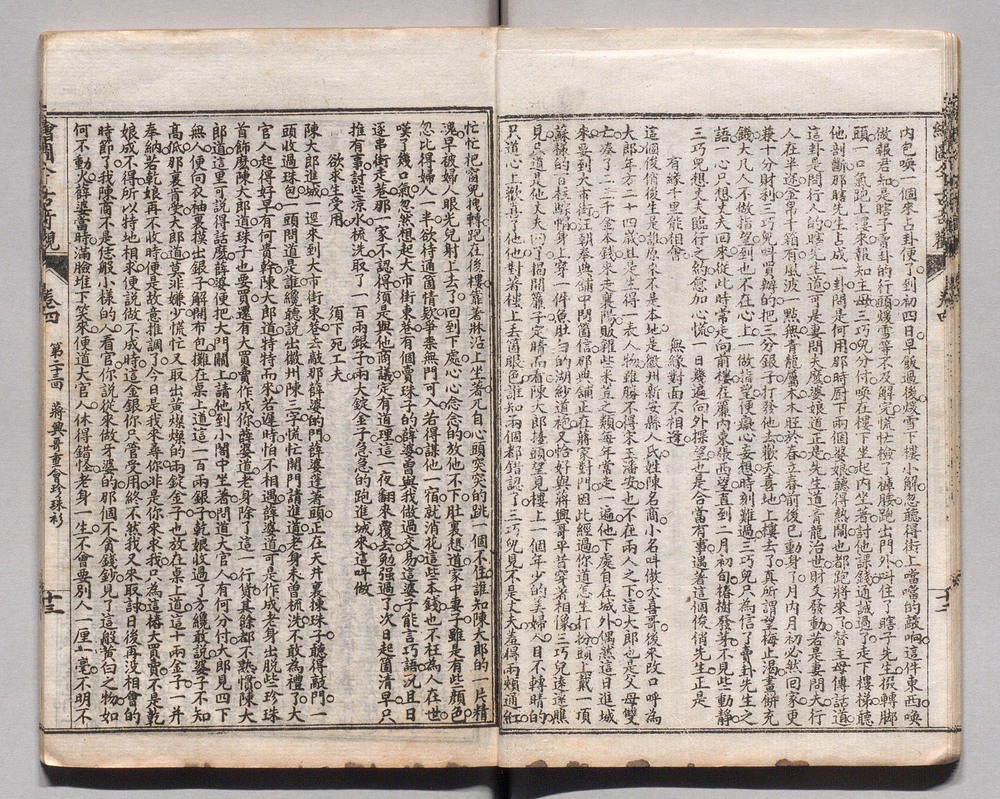 内包喚一個來占卦便了到初四日早飯過後煖雪下樓小解忽聽得街上噹噹的敲响這件東西喚
做報君知是瞎子賣卦的行頭煖雪等不及解完慌忙檢了褲腰跑出門外叫住了瞎子先生撥轉脚
頭一口氣跑上樓來報知主母三巧兒分付喚在樓下坐起内坐著討他課錢通誠過了走下樓梯聽
他剖斷那瞎先生占成一卦問是何用那時廚下兩個婆娘聽得熱鬧也都跑將來了替主母傳話道
這卦是問行人的瞎先生道可是妻問夫麽婆娘道正是先生道青龍治世財爻發動若是妻問夫行
人在半途金帛千箱有風波一點無青龍屬木木旺於春立春前後已動身了月内月初必然回家更
兼十分財利三巧兒叫買辦的把三分銀子打發他去歡天喜地上樓去了真所謂望梅止渴畫餅充
饑大凡人不做指望到也不在心上一做指望便癡心妄想時刻難過三巧兒只為信了賣卦先生之
語一心只想丈夫回來從此時常走向前樓在簾内東張西望直到二月初旬椿樹發芽不見些動靜
三巧兒想丈夫臨行之約愈加心慌一日幾遍向外探望也是合當有事遇著這個俊俏先生正是
有緣千里能相會 無緣對面不相逢
這個俊俏後生是誰原來不是本地是徽州新安縣人氏姓陳名商小名叫做大喜哥後來改口呼為
大郎年方二十四歲且是生得一表人物雖勝不得宋玉潘安也不在兩人之下這大郎也是父母雙
亡湊了二三千金本錢來走襄陽販糴些米豆之類每年常走一遍他下處自在城外偶然這日進城
來要到大市街汪朝奉典當舖中問個家信那典舖正在蔣家對門因此經過你道怎生打扮頭上戴一頂
蘇樣的百柱騌帽身上穿一件魚肚白的湖紗道袍又恰好與蔣興哥平昔穿著相像三巧兒遠遠瞧
見只道是他丈夫回了揭開簾子定睛而看陳大郎擡頭望見樓上一個年少的美婦人目不轉睛的
只道心上歡喜了他他對著樓上丢個眼色誰知兩個都錯認了三巧兒見不是丈夫羞得兩頰通紅
忙忙把窗兒拽轉跑在後樓靠著牀沿上坐著兀自心頭突突的跳一個不住誰知陳大郎的一片精
魂早被婦人眼光兒射上去了回到下處心心念念的放他不下肚裏想道家中妻子雖是有些顏色
怎比得婦人一半欲待通個情欵爭奈無門可入若得謀他一宿就消花這些本錢也不枉為人在世
嘆了幾口氣忽然想起大市街東巷有個賣珠子的薛婆曾與我做過交易這婆子能言巧語况且日
逐串街走巷那一家不認得須是與他商議定有道理這一夜翻來覆去勉强過了次日起個清早只
推有事討些凉水梳洗取了一百兩銀子兩大錠金子急急的跑進城來這叫做
欲求生受用 須下死工夫
陳大郎進城一逕來到大市街東巷去敲那薛婆的門薛婆蓬著頭正在天井裏揀珠子聽得敲門一
頭收過珠包一頭問道是誰纔聽説出徽州陳三字慌忙開門請進道老身未曾梳洗不敢為禮了大
官人起得好早有何貴幹陳大郎道特特而來若遲時怕不相遇薛婆道可是作成老身出脱些珍珠
首飾麽陳大郎道珠子也要買還有大買賣作成你薛婆道老身除了這一行貨其餘都不熟慣陳大
郎道這里可説得話麽薛婆便把大門關上請他到小閣中坐著問道大官人有何分付大郎見四下
無人便向衣袖裏摸出銀子解開布包攤在桌上道這一百兩銀子乾娘收過了方纔敢説婆子不知
高低那裏肯受大郎道莫非嫌少慌忙又取出黄燦燦的兩錠金子也放在桌上道這十兩金子一并
奉納若乾娘再不收時便是故意推調了今日是我來尋你非是你來求我只為這樁大買賣不是乾
娘成不得所以特地相求便説做不成時這金銀你只管受用終不然我又來取討日後再没相會的
時節了我陳商不是恁般小樣的人看官你説從來做牙婆的那個不貪錢鈔見了這般黄白之物如
何不動火薛婆當時滿臉堆下笑來便道大官人休得錯怪老身一生不曾要别人一厘一毫不明不
繪圖今古奇觀
卷四
第二十三回 蔣興哥重會珍珠衫
十三